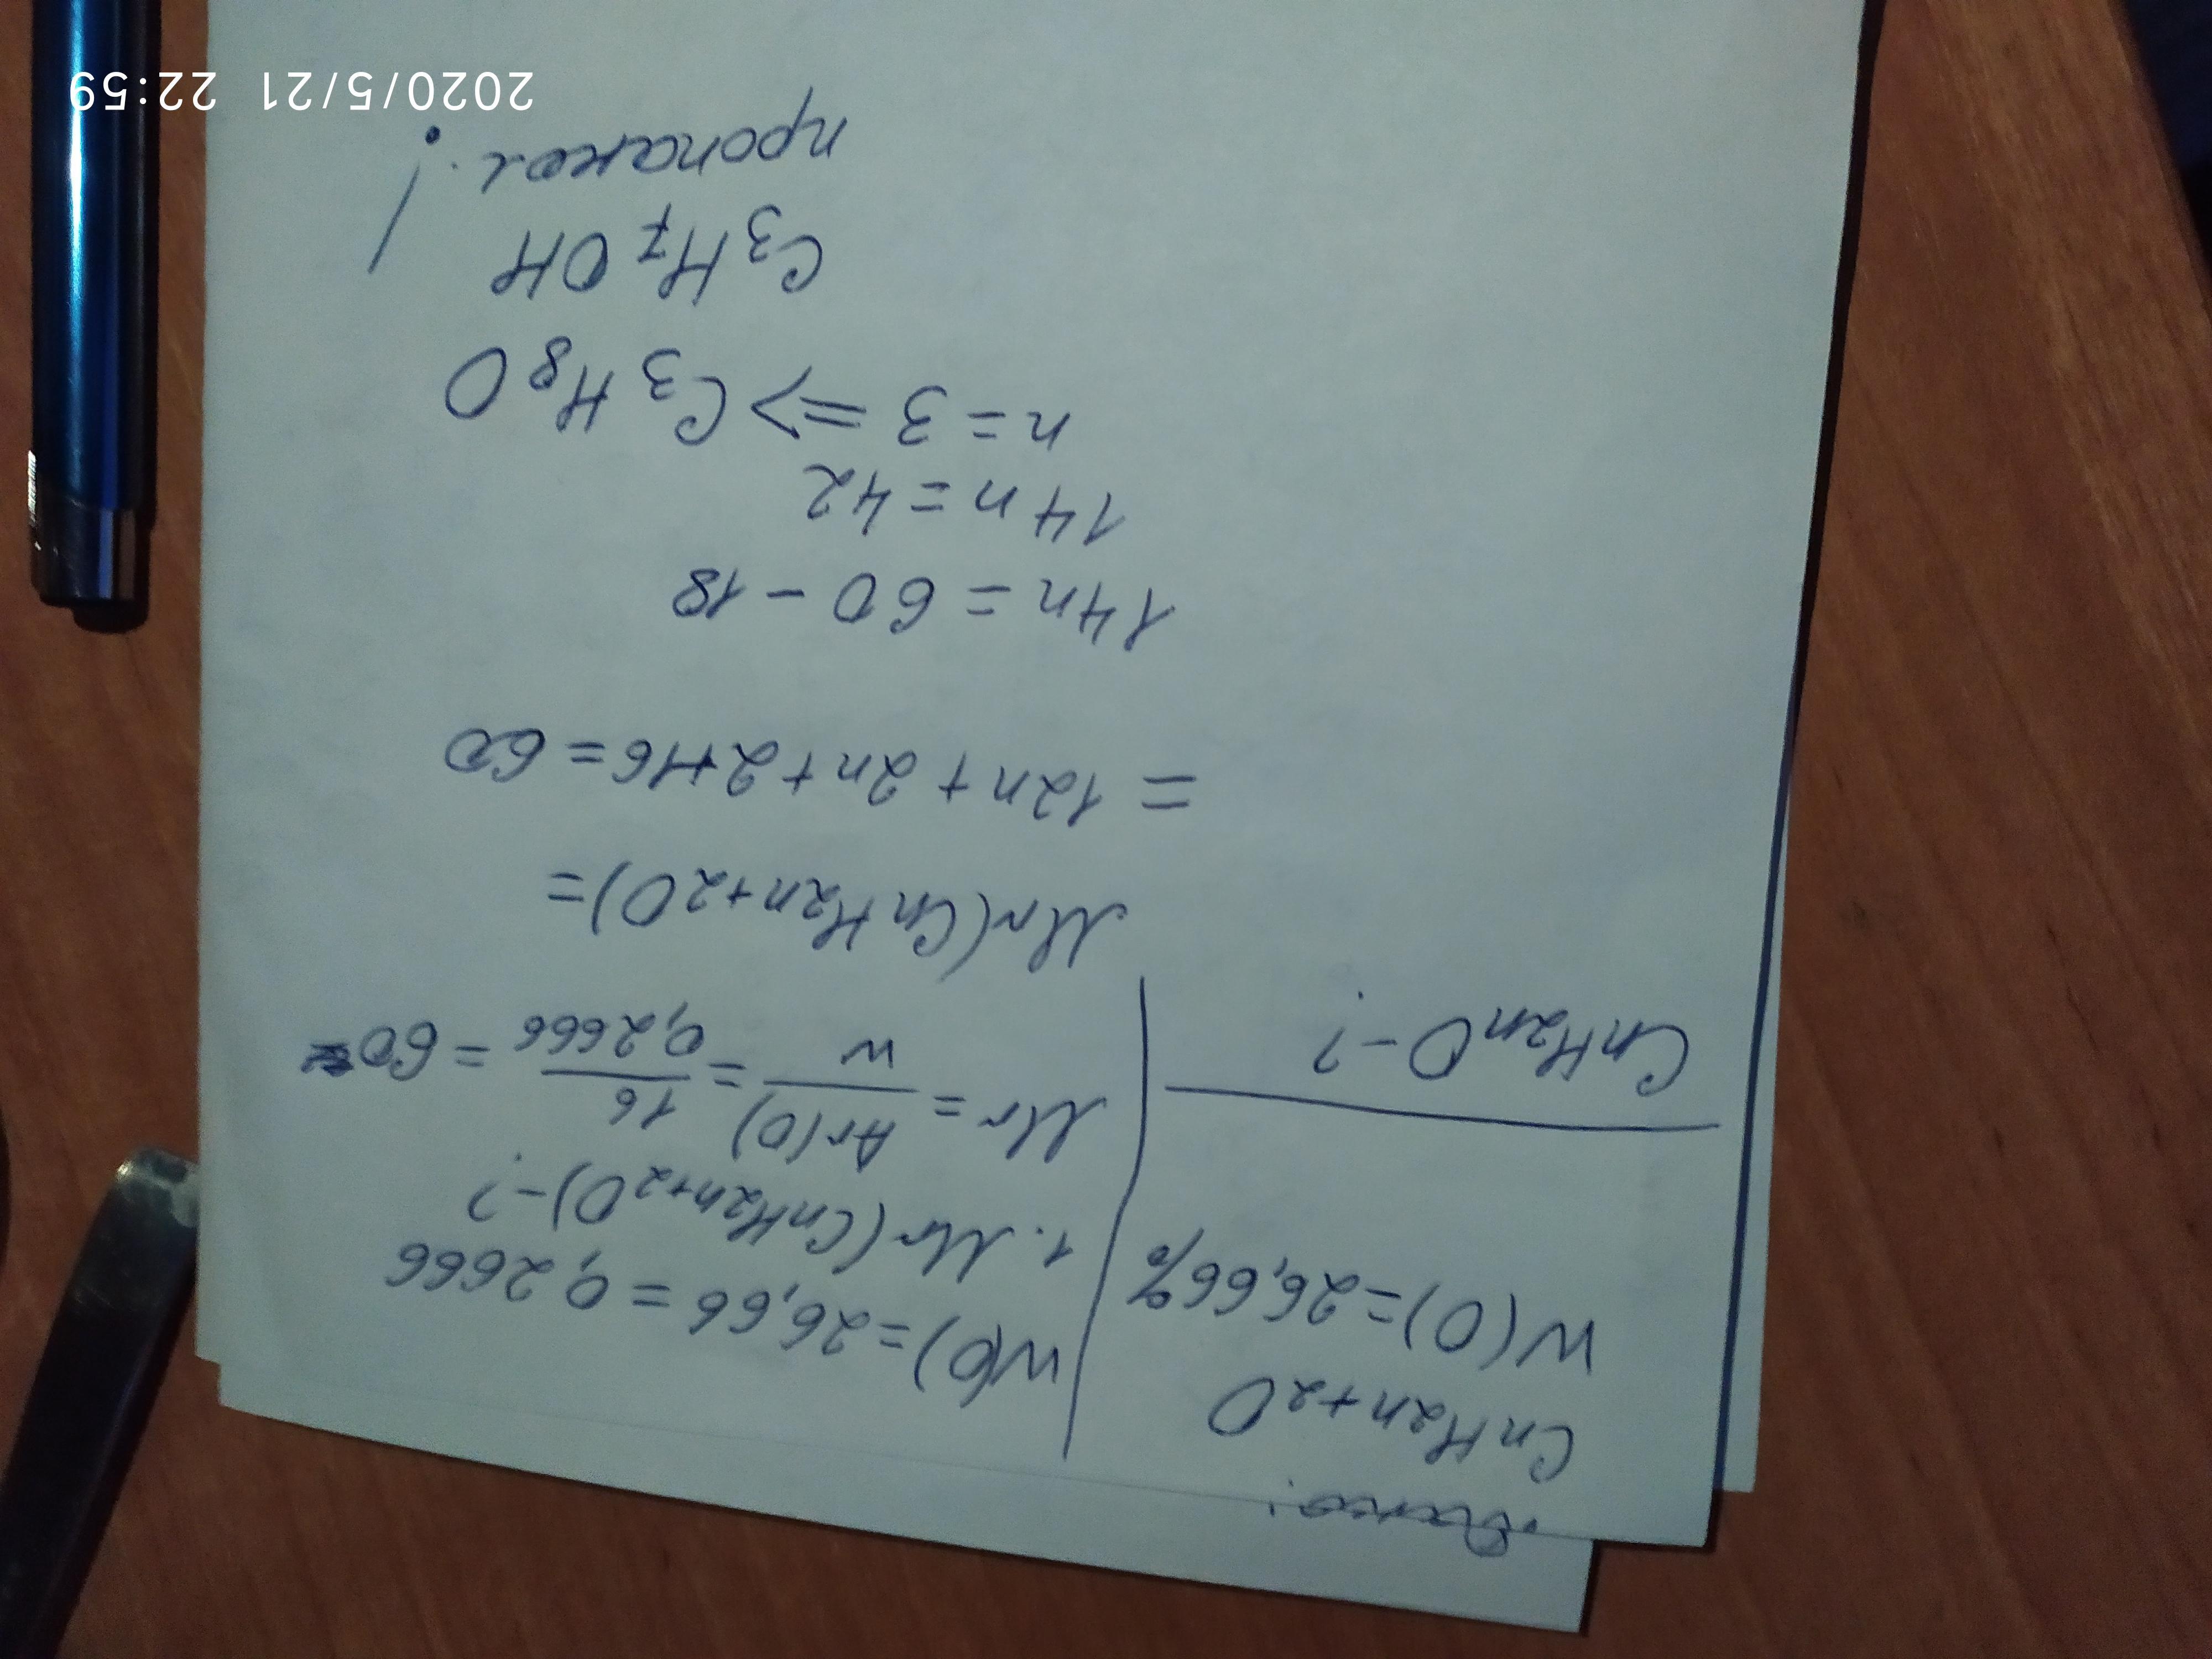 Дано:
CnH2n+2O
W(O)=26,66%
CnH2nO-?
W(O)=26,66 = 0,2666
1. Mr(CnH2n+2O)-?
Mr = Ar(O)/w = 16/0,2666 = 60
Mr(CnH2n+2O)=
= 12n + 2n + 2+16 = 60
14n = 60 - 18
14n = 42
n = 3 => C3H8O
C3H7OH
пропанол!
2020/5/21 22:59